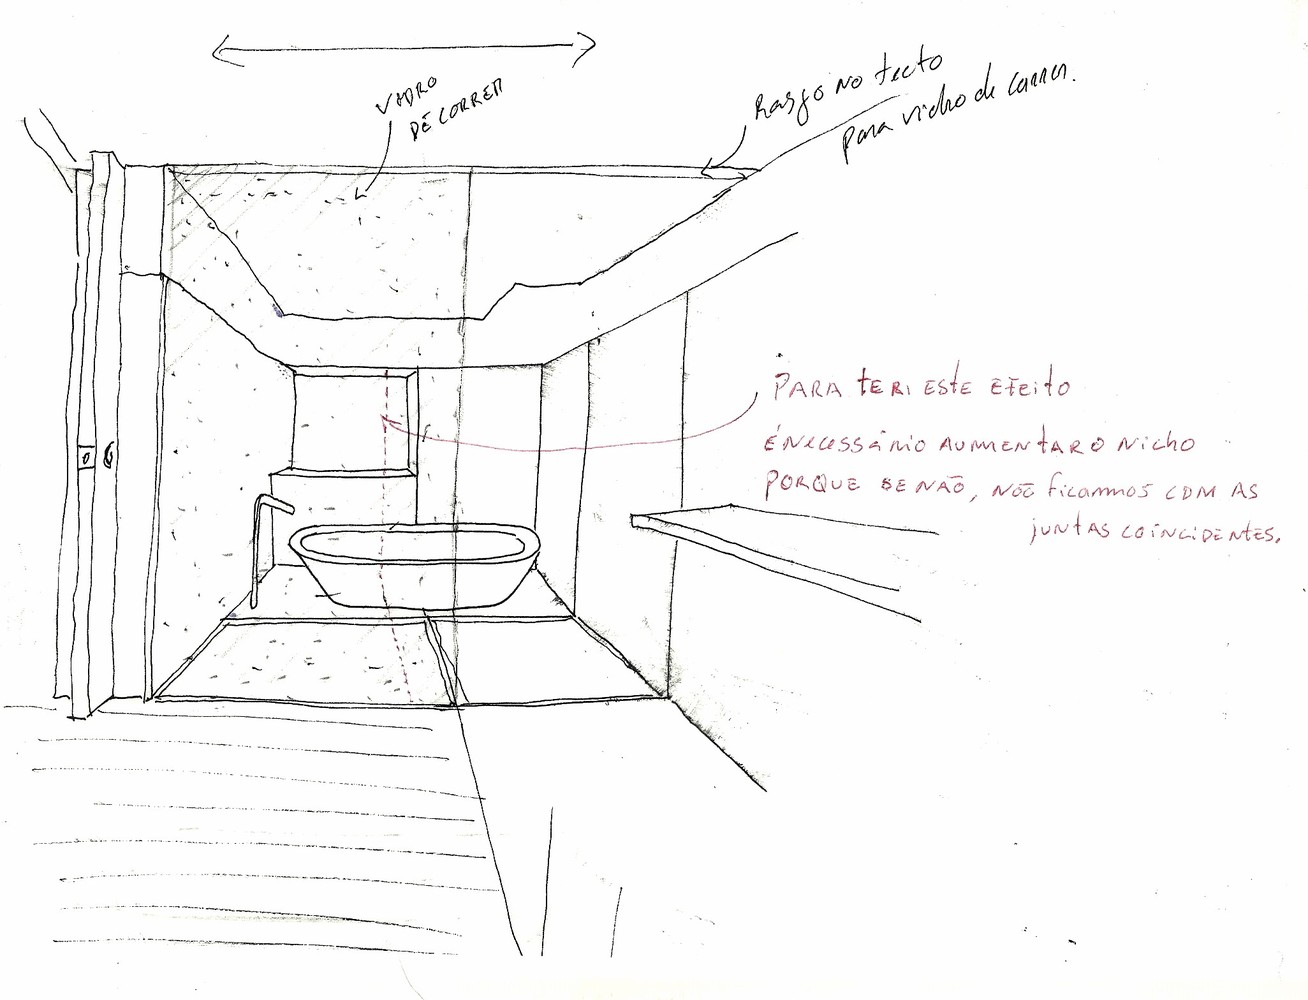 VIDRO
DE CORRER
Rasgo no tecto
para vidro de correr.
PARA TERI ESTE EFEITO
É NECESSÁRIO AUMENTAR O NICHO
PORQUE SE NÃO, NÃO FICAMMOS COM AS
JUNTAS COINCIDENTES.